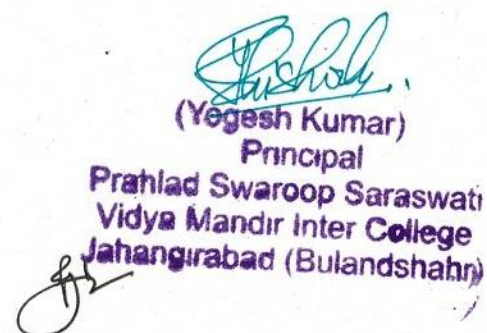 (Yogesh Kumar)
Principal
Prahlad Swaroop Saraswati
Vidya Mandir Inter College
Jahangirabad (Bulandshahr)